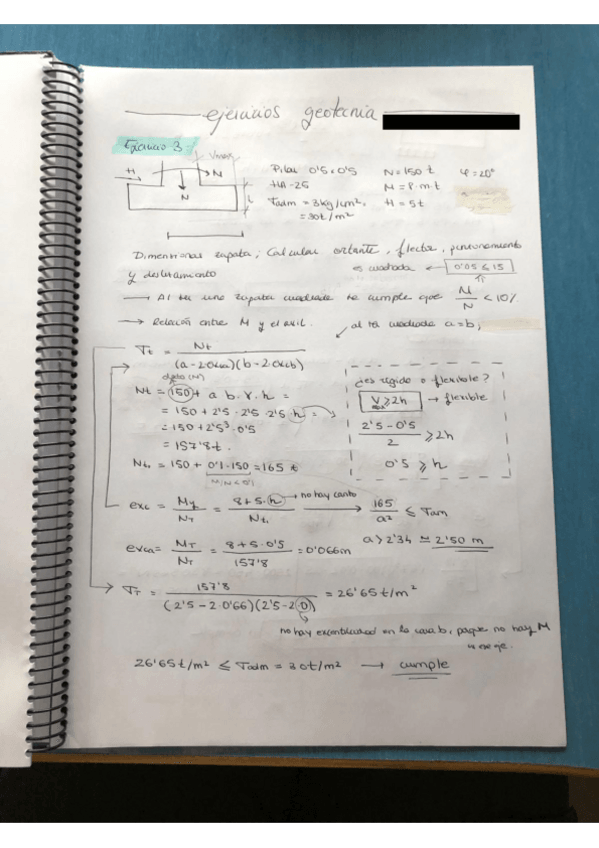 ejercicios geotecnia
Ejercicio 3
Vmax
H
M
N
h
Pilar 0'5 x 0'5 N = 150 t φ = 20°
HA-25 M = 8 m t
σadm = 3 kg/cm², H = 5 t
= 30 t/m²
Dimensionar zapata; Calcular cortante, flector, punzonamiento
y deslizamiento es cuadrada ← 0'05 ≤ 15
→ Al ser una zapata cuadrada se cumple que M/N < 10%
→ Relación entre M y el axil. al ser cuadrada a = b;
σt = Nt / (a - 2·exca)(b - 2·excb)
dato (N)
Nt = 150 + a · b · γ · h =
= 150 + 2'5 · 2'5 · 2'5 · h =
= 150 + 2'5³ · 0'5
= 157'8 t.
Ntr = 150 + 0'1 · 150 = 165 t
¿es rígido o flexible?
V ≥ 2h → flexible
max
2'5 - 0'5 / 2 ≥ 2h
0'5 ≥ h
exc = My / NT = 8 + 5 · h / Nt → no hay canto → 165 / a² ≤ σadm
a > 2'34 ≃ 2'50 m
exca = MT / NT = 8 + 5 · 0'5 / 157'8 = 0'066 m
σT = 157'8 / (2'5 - 2·0'066)(2'5 - 2·0) = 26'65 t/m²
no hay excentricidad en la cara b, porque no hay M
26'65 t/m² ≤ σadm = 30 t/m² → cumple